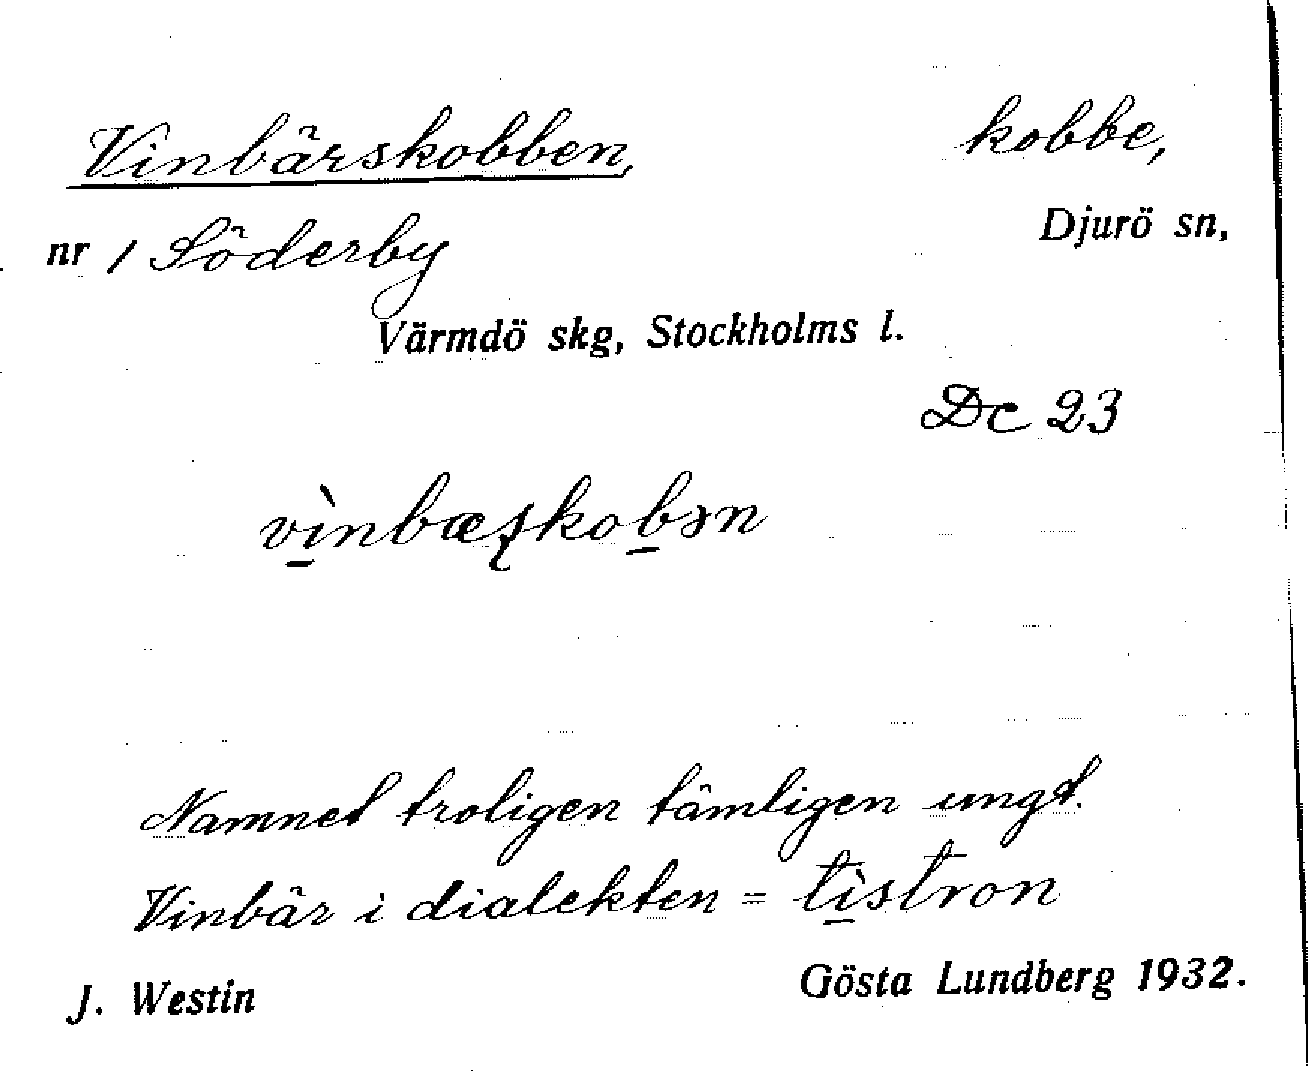 Vinbärskobben, kobbe,
nr 1 Söderby Djurö sn,
Värmdö skg, Stockholms l.
Dc 23
vìnbæʂkobən
Namnet troligen tämligen ungt.
Vinbär i dialekten = tìstron
J. Westin Gösta Lundberg 1932.